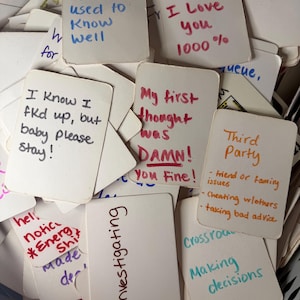 used to
know
well
I Love
you
1000%
I know I
fkd up, but
baby please
stay!
My first
thought
was
DAMN!
you Fine!
Third
Party
- friend or family
issues
- cheating w/others
- taking bad advice
notice
*Energy
Shi
made
investigating
crossroad
Making
decisions